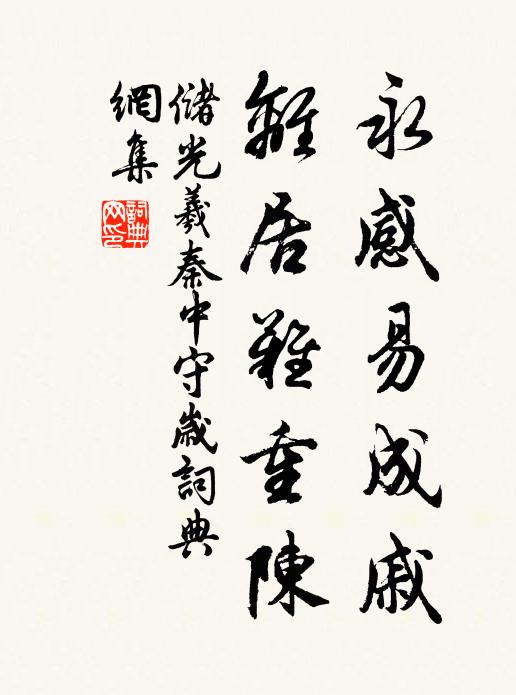 永感易成戚
離居難重陳
儲光羲秦中守歲詞典
網集
詞典
網印